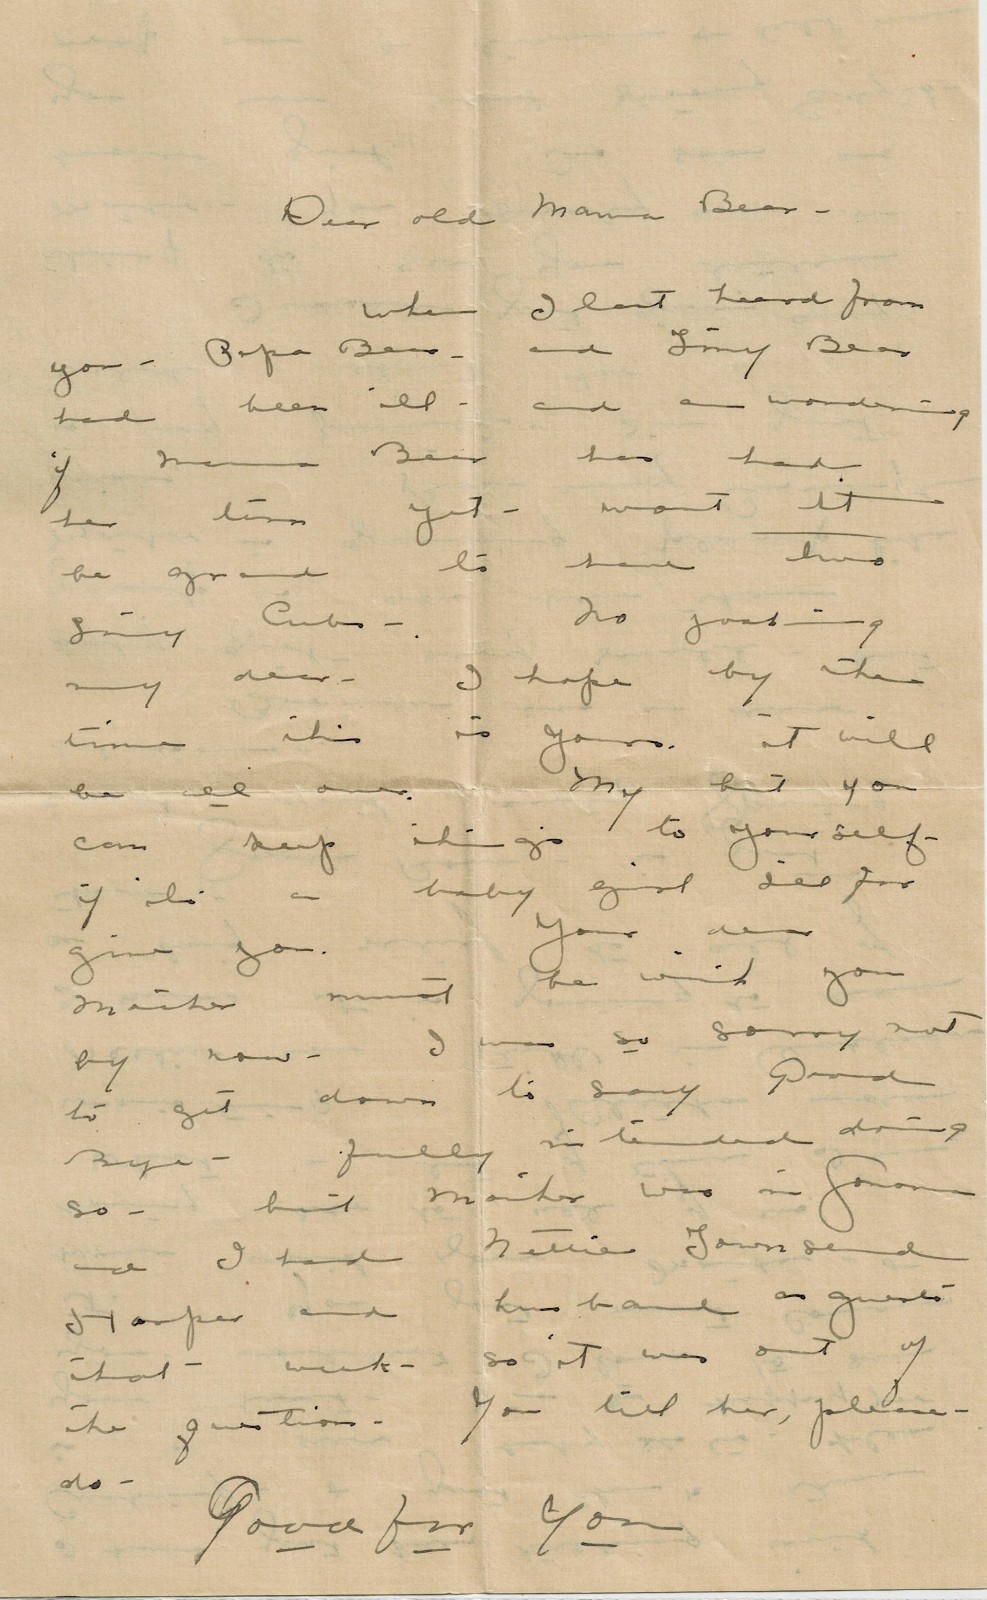 Dear old Mama Bear -
when I last heard from
you - Papa Bear - and Tiny Bear
had been ill - and am wondering
if Mama Bear has had
her turn yet - wont it
be grand to have two
tiny Cubs -. No joshing
my dear - I hope by the
time this is yours. it will
be all over. My but you
can keep things to yourself -
if its a baby girl Ill for
give you. Your dear
Mother must be with you
by now - I was so sorry not
to get down to say Good
Bye - fully intended doing
so - but Mother was in
and I had Nettie Townsend
Harper and husband as guests
that week - so it was out of
the question - You tell her, please -
do -
Good for You